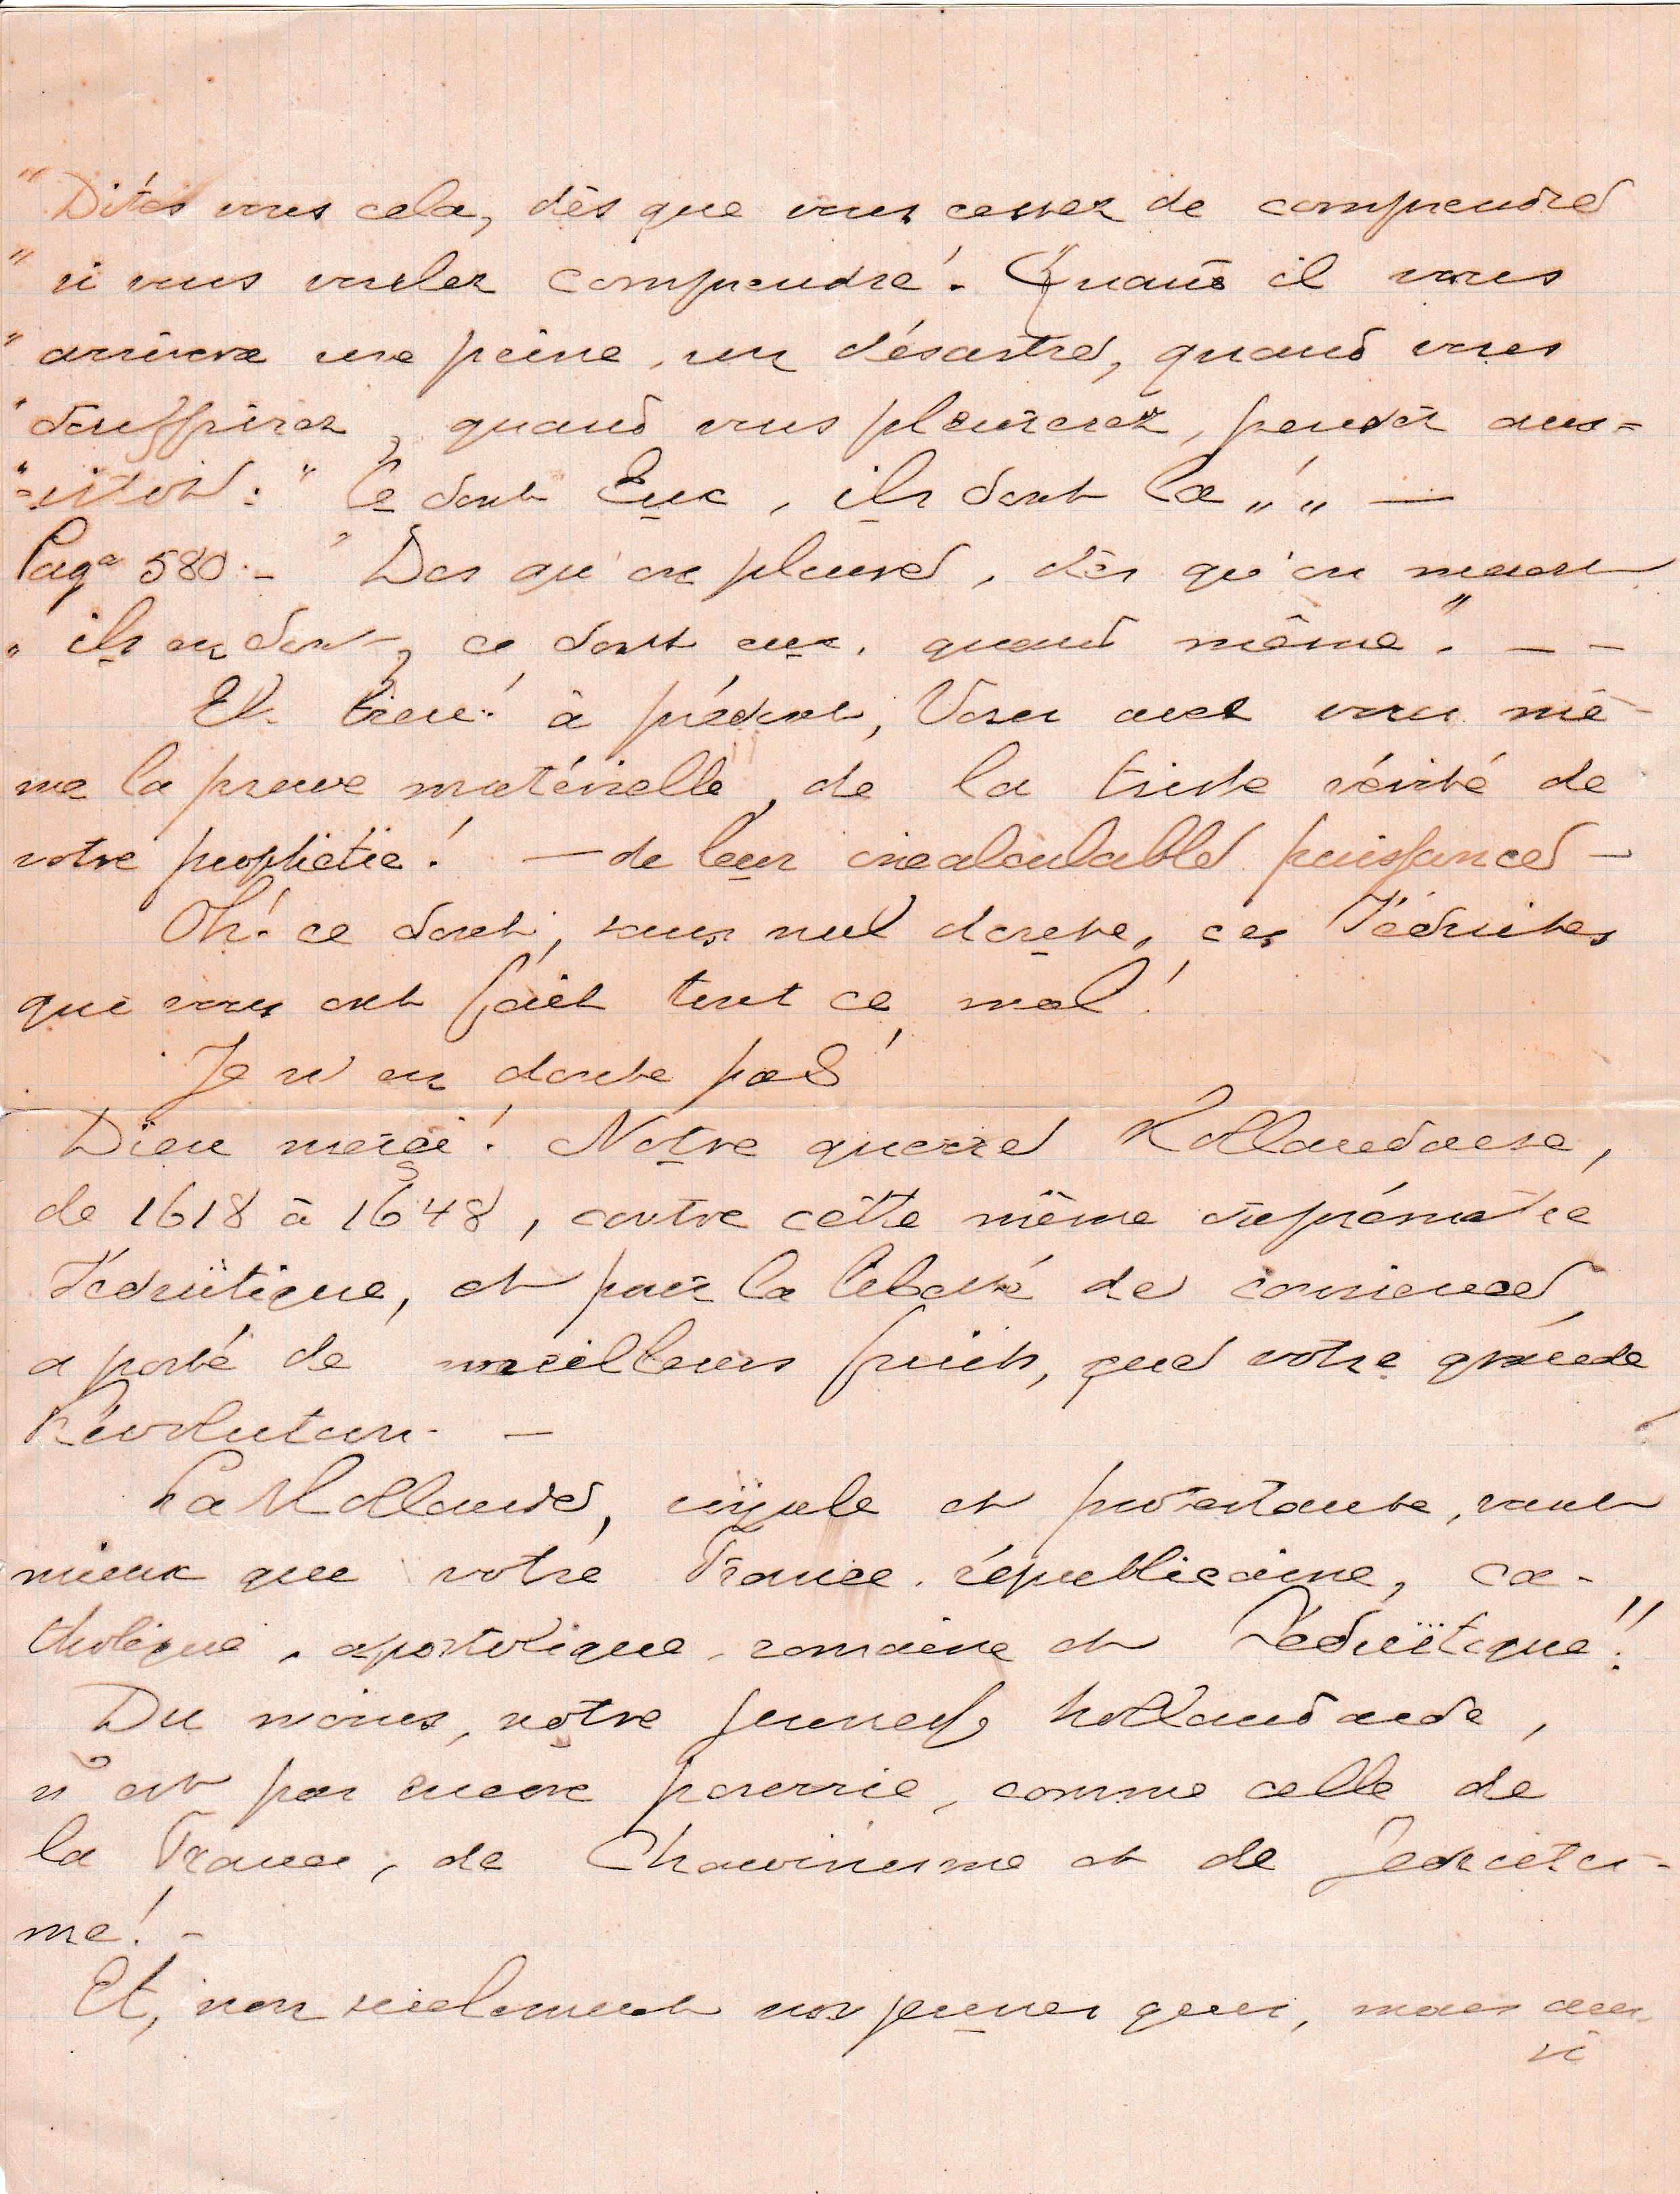 " Dites vous cela, dès que vous cessez de comprendre
" si vous voulez comprendre! Quand il vous
" arrivera une peine, un désastre, quand vous
" souffrirez, quand vous pleurerez, pensez aus=
"=sitôt: " Ce sont Eux, ils sont là " " —
Page 580.- " Dès qu'on pleure, dès qu'on meurt
" ils en sont, ce sont eux, quand même". — —
Eh bien! à présent, Vous avez vous mê-
me la preuve matérielle, de la triste vérité de
votre prophétie! — de leur incalculable puissance —
Oh! ce sont, sans nul doute, ces Jésuites
qui vous ont fait tout ce mal!
Je n'en doute pas!
Dieu merci! Notre guerre Hollandaise,
de 1618 à 1648, contre cette même suprématie
Jésuïtique, et pour la liberté de conscience,
a porté de meilleurs fruits, que votre grande
Révolution. —
La Hollande, et protestante, vaut
mieux que votre France républicaine, ca-
tholique, apostolique, romaine et Jésuïtique!!
Du moins, notre jeunesse hollandaise,
n'est pas encore pourrie, comme celle de
la France, de Chauvinisme et de Jésuitis-
me! -
Et, non seulement nos jeunes gens, mais aus-
si